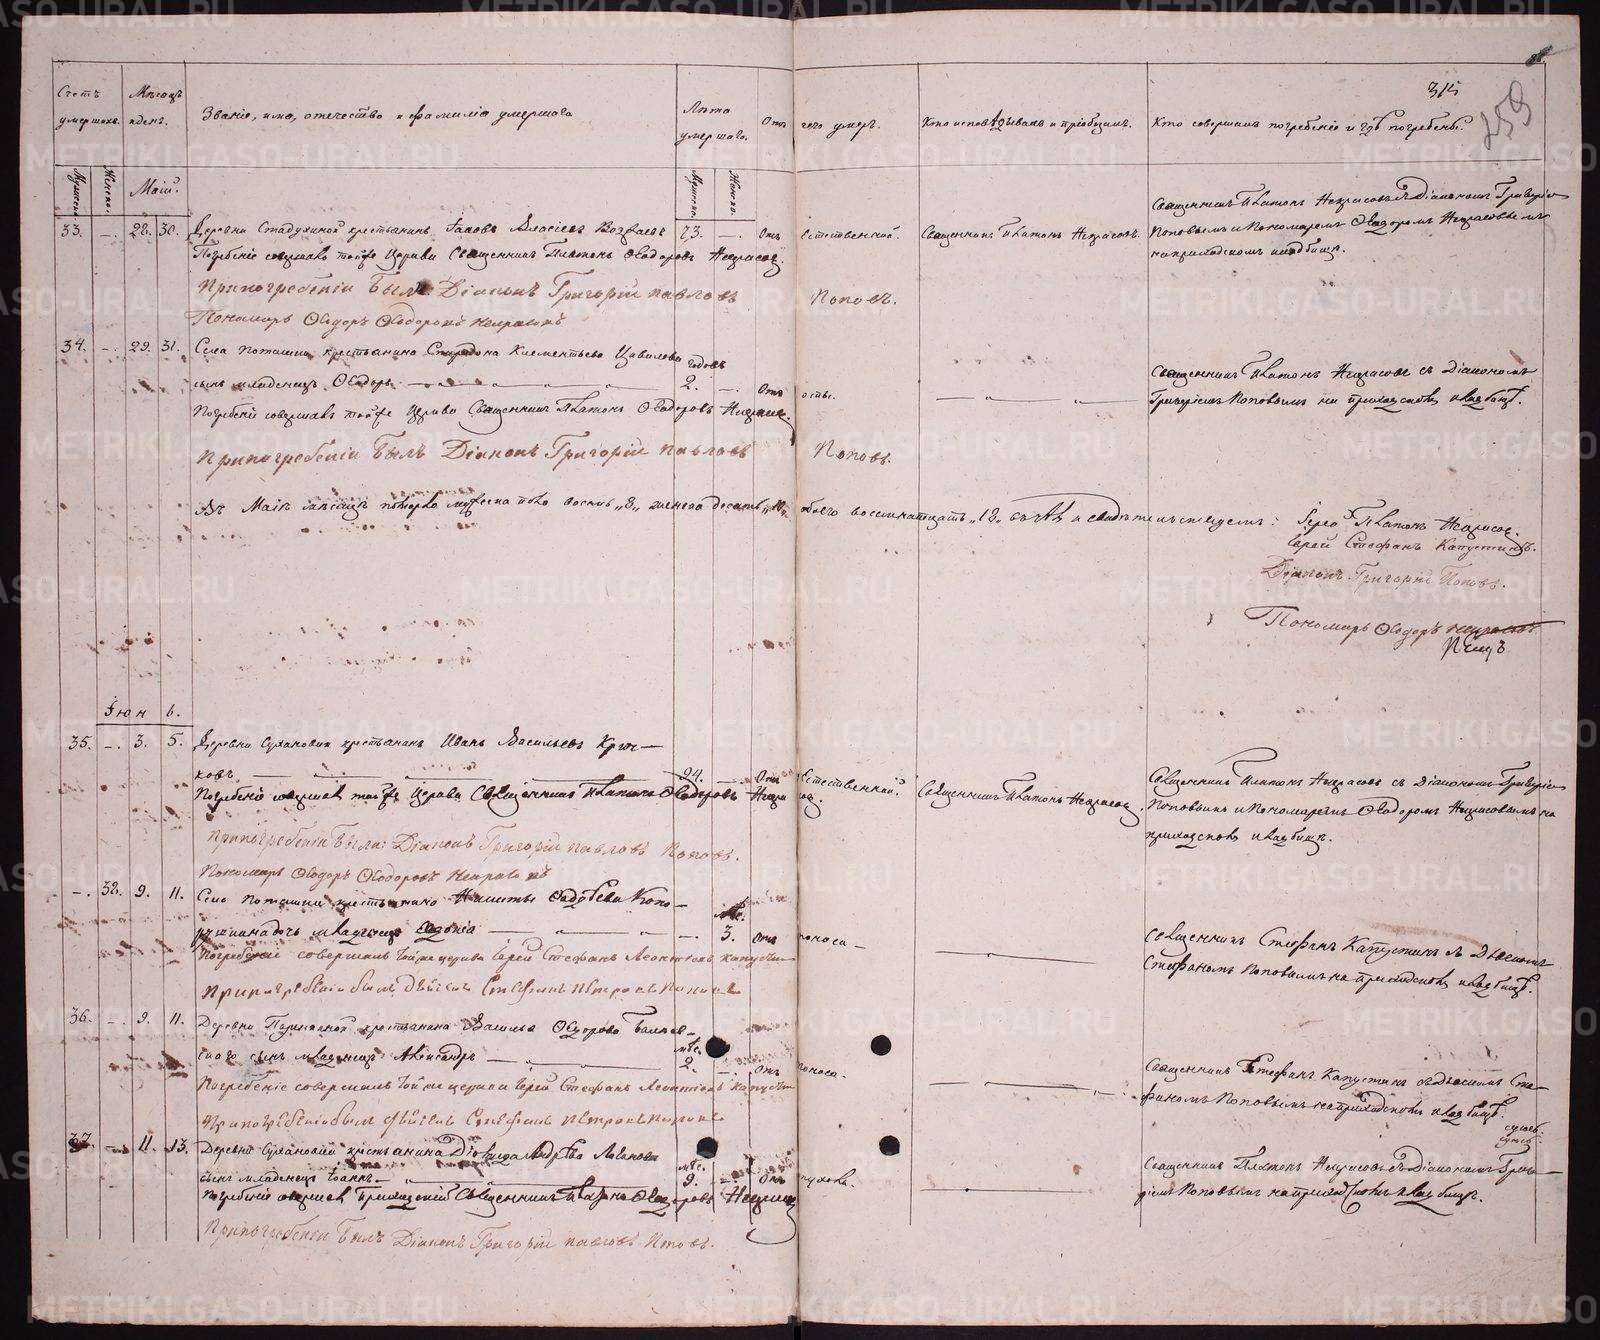 315
259
Счетъ умершихъ.
Мѣсяцъ и день.
Званіе, имя, отечество и фамилія умершаго
Лѣта умершаго.
Отъ чего умеръ.
Кто исповѣдывалъ и пріобщалъ.
Кто совершалъ погребеніе и гдѣ погребены.
Мужеска.
Женска.
Маій.
Мужеска.
Женска.
33. —. 28. 30. Деревни крестьянинъ Іаковъ Власіевъ 73. —. Отъ естественной. Священникъ Платонъ Некрасовъ. Священникъ Платонъ Некрасовъ съ Діакономъ Григоріемъ
Погребеніе совершалъ тойже Церкви Священникъ Платонъ Ѳеодоровъ Некрасов. Поповымъ и Пономаремъ Ѳеодоромъ Некрасовымъ
на приходскомъ кладбищѣ.
При погребеніи былъ Діаконъ Григорій Павловъ Поповъ.
Пономарь Ѳеодоръ Ѳеодоровъ Некрасовъ
34. —. 29. 31. Села Поташки крестьянина Спиридона Климентьева
годовъ
сынъ младенецъ Ѳеодоръ 2. —. Отъ оспы. Священникъ Платонъ Некрасовъ съ Діакономъ
Погребеніе совершалъ тойже Церкви Священникъ Платонъ Ѳеодоровъ Некрасов. Григоріемъ Поповымъ на приходскомъ кладбищѣ.
При погребеніи былъ Діаконъ Григорій Павловъ Поповъ.
Въ Маіѣ мѣсяцѣ померло мужеска пола восемь „8„ женска десять „10„ обоего восемнатцать „18„ въ чемъ и свидѣтельствуемъ: Іерей Платонъ Некрасов.
Іерей Стефанъ Капустинъ.
Діаконъ Григорій Поповъ.
Пономарь Ѳеодоръ Некрасовъ
Іюнь.
35. —. 3. 5. Деревни Сухановки крестьянинъ Иванъ Васильевъ Крю-
ковъ 94. —. Отъ естественной. Священникъ Платонъ Некрасов. Священникъ Платонъ Некрасовъ съ Діакономъ Григоріемъ
Погребеніе совершалъ тойже Церкви Священникъ Платонъ Ѳеодоровъ Некрасов. Поповымъ и Пономаремъ Ѳеодоромъ Некрасовымъ на
приходскомъ кладбищѣ.
При погребеніи были: Діаконъ Григорій Павловъ Поповъ.
Пономарь Ѳеодоръ Ѳеодоровъ Некрасовъ
—. 32. 9. 11. Села Поташки крестьянина Никиты
мѣс.
дочь младенецъ —. 3. Отъ поноса Священникъ Стефанъ Капустинъ съ
Погребеніе совершалъ тойже церкви Іерей Стефанъ Леонтіевъ Капустин Стефаномъ Поповымъ на приходскомъ кладбищѣ.
При погребеніи былъ Стефанъ Петровъ Поповъ
36. —. 9. 11. Деревни крестьянина Василья Ѳедорова
мѣс.
скаго сынъ младенецъ Александръ 2. —. Отъ поноса. Священникъ Стефанъ Капустинъ съ Сте-
Погребеніе совершалъ тойже церкви Іерей Стефанъ Леонтіевъ Капустин фаномъ Поповымъ на приходскомъ кладбищѣ.
При погребеніи былъ Стефанъ Петровъ Поповъ
37. —. 11. 13. Деревни Сухановки крестьянина
мѣс.
сынъ младенецъ Іоаннъ 9. —. Отъ Священникъ Платонъ Некрасовъ съ Діакономъ Григо-
Погребеніе совершалъ Приходскій Священникъ Платонъ Ѳеодоровъ Некрасов ріемъ Поповымъ на приходскомъ кладбищѣ.
При погребеніи былъ Діаконъ Григорій Павловъ Поповъ.
METRIKI.GASO-URAL.RU